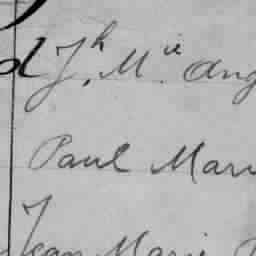 d Jh. Mie Ang
Paul Mari
Jean Marie